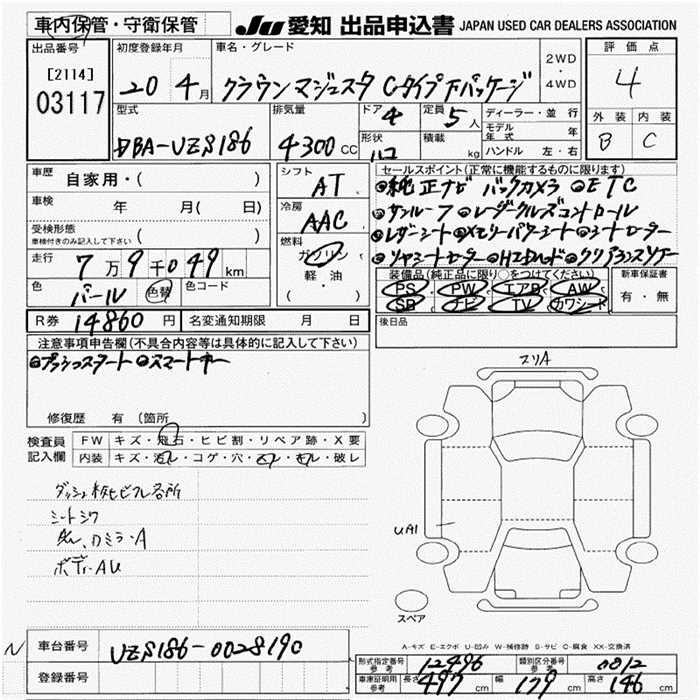 車内保管・守衛保管
JU 愛知 出品申込書 JAPAN USED CAR DEALERS ASSOCIATION
出品番号 [2114] 03117
初度登録年月 20 4月
車名・グレード クラウンマジェスタ Cタイプ Fパッケージ
2WD・4WD
評価点 4
外装 内装
B C
型式 DBA-UZS186
排気量 4300 CC
ドア 4
定員 5人
形状
積載 kg
ディーラー・並行
モデル年式 年
ハンドル 左・右
車歴 自家用・( )
車検 年 月( 日)
受検形態 ( )
車検付きのみ記入して下さい
走行 7万9千049km
色 パール 色替 色コード
シフト AT
冷房 AAC
燃料 ガソリン
軽・油
( )
セールスポイント(正常に機能するものに限ります)
純正ナビ バックカメラ ETC
サンルーフ レーダークルーズコントロール
レザーシート メモリーパワーシート シートヒーター
リヤシートヒーター HIDヘッド クリアランスソナー
装備品(純正品に限り○をつけてください)
PS PW エアB AW
SR ナビ TV カワシート
新車保証書
有・無
R券 14860円 名変通知期限 月 日
後日品
注意事項申告欄(不具合内容等は具体的に記入して下さい)
プッシュスタート スマートキー
修復歴 有(箇所 )
検査員記入欄
FW キズ・飛石・ヒビ割・リペア跡・X要
内装 キズ・汚レ・コゲ・穴・スレ・キレ・破レ
シートシワ
ボディAU
スリA
UA1
スペア
A-キズ E-エクボ U-凹み W-補修跡 S-サビ C-腐食 XX-交換済
N
車台番号 UZS186-0028190
登録番号
形式指定番号 参考 12496 類別区分番号 参考 0012
車庫証明用 参考 長さ 497cm 幅 179cm 高さ 146cm